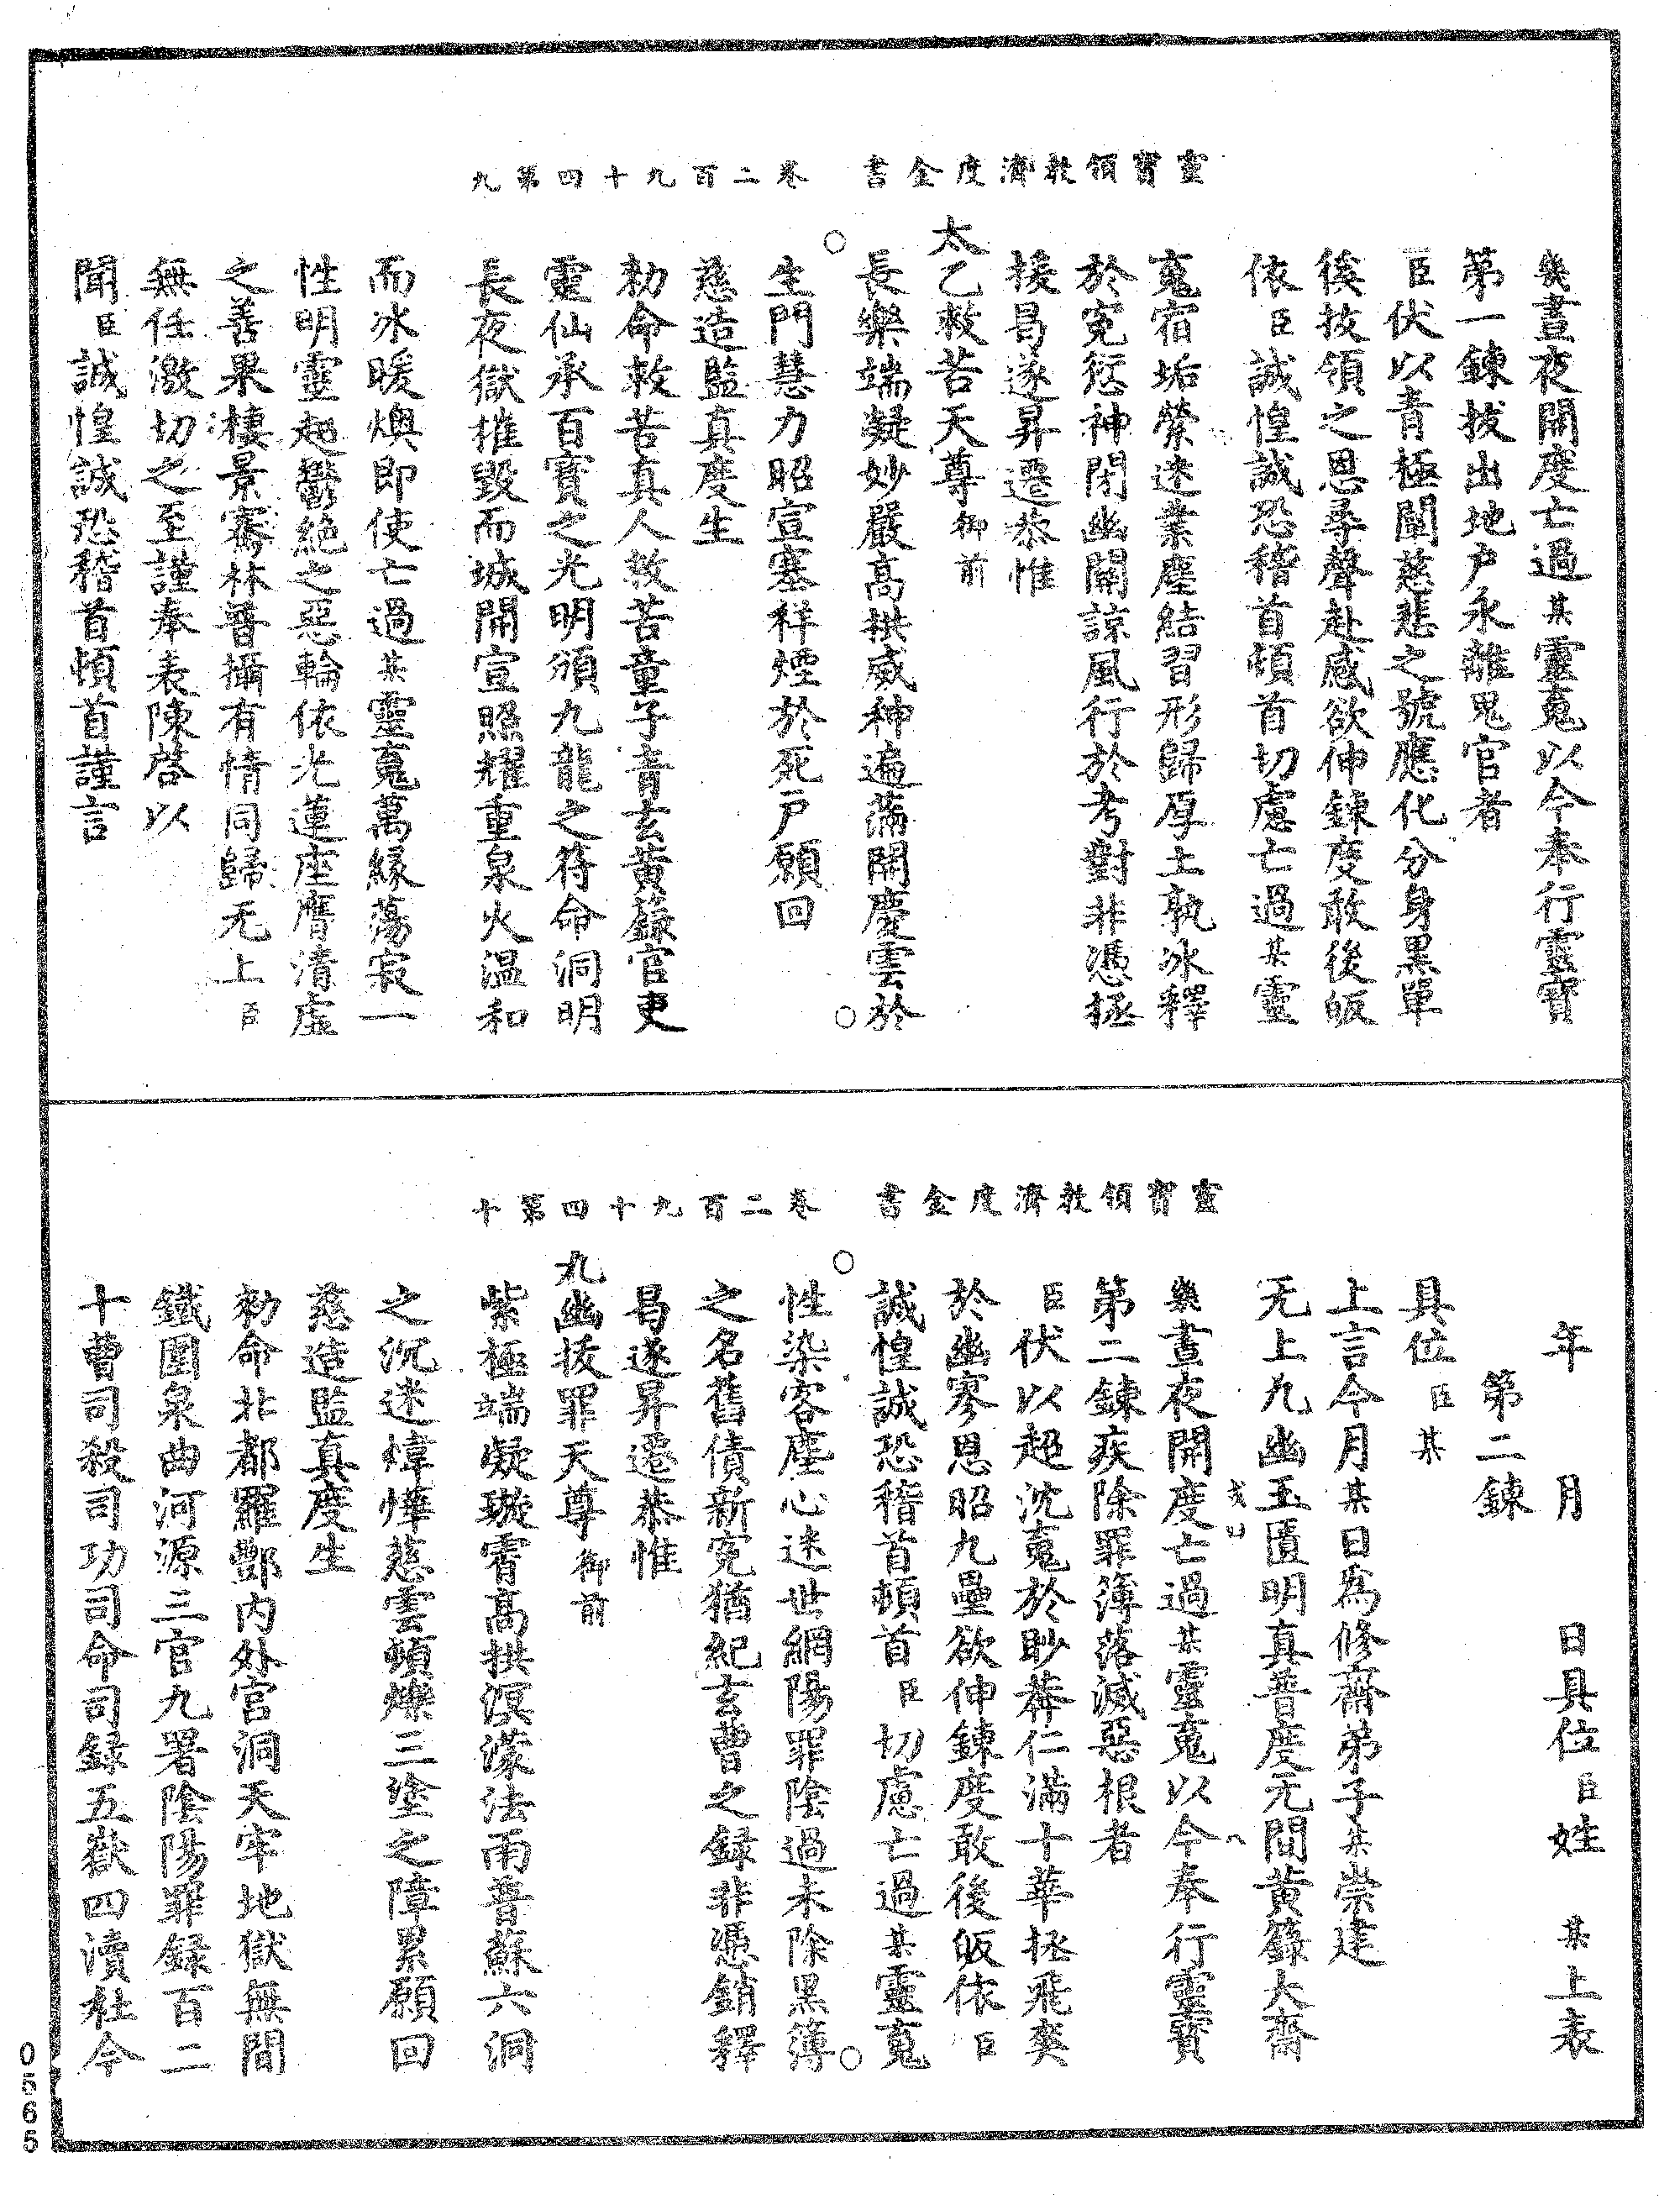 靈寶領教濟度金書　卷二百九十四第九
幾晝夜開度亡過某靈䰟以今奉行靈寶
第一鍊拔出地户永離鬼官者
臣伏以青極闡慈悲之號應化分身黑單
俟技領之恩尋聲赴感欲伸鍊度敢後皈
依臣誠惶誠恐稽首頓首切慮亡過某靈
䰟宿垢縈迷業塵結習形歸厚土孰冰釋
於寃愆神閉幽關諒風行於考對非憑拯
援曷遂昇遷恭惟
太乙救苦天尊御前
長樂端凝妙嚴高拱威神遍滿開慶雲於
生門慧力昭宣塞祥煙於死户願回
慈造監真度生
勑命救苦真人救苦童子青玄黄籙官吏
靈仙承百寳之光明頒九龍之符命洞明
長夜獄摧毀而城開宣照耀重泉火温和
而冰暖燠即使亡過某靈䰟萬緣蕩寂一
性明靈起鬱絶之惡輪依光蓮座膺清虚
之善果棲景騫林普攝有情同歸无上臣
無任激切之至謹奉表陳啓以
聞臣誠惶誠恐稽首頓首謹言
靈寶領教濟度金書　卷二百九十四第十
年　月　日具位臣姓　某上表
第二鍊
具位臣某
上言今月某日爲修齋弟子某崇建
无上九幽玉匱明真普度无間黄籙大齋
幾晝夜開度亡過某靈䰟以今奉行靈寳
第二鍊疾除罪簿落滅惡根者
臣伏以超沈䰟於眇莽仁滿十華拯飛爽
於幽寥恩昭九壘欲伸鍊度敢後皈依臣
誠惶誠恐稽首頓首臣切慮亡過某靈䰟
性染客塵心迷世網陽罪陰過未除黒簿
之名舊債新寃猶紀玄曹之録非憑銷釋
曷遂昇遷恭惟
九幽拔罪天尊御前
紫極端凝璇霄高拱溟濛法雨普蘇六洞
之沉迷煒燁慈雲頓爍三塗之障累願回
慈造監真度生
勑命北都羅酆内外官洞天牢地獄無間
鐵圍泉曲河源三官九署陰陽罪録百二
十曹司殺司功司命司録五嶽四瀆社令
0565